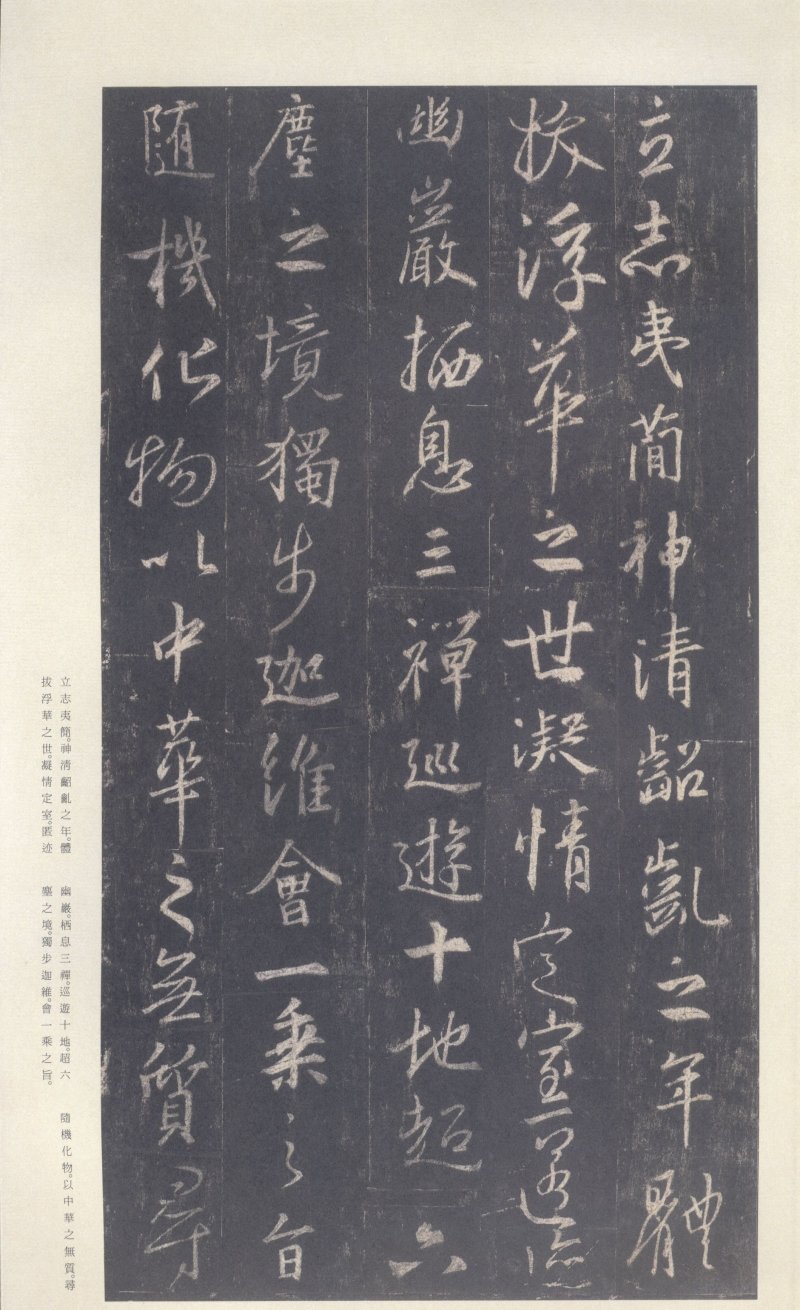 立志夷簡神清齠齔之年體
拔浮華之世凝情定室匿迹
幽巖栖息三禪巡遊十地超六
塵之境獨步迦維會一乘之旨
隨機化物以中華之無質尋
立志夷簡。神清齠齔之年。體
拔浮華之世。凝情定室。匿迹
幽巖。栖息三禪。巡遊十地。超六
塵之境。獨步迦維。會一乘之旨。
隨機化物。以中華之無質。尋